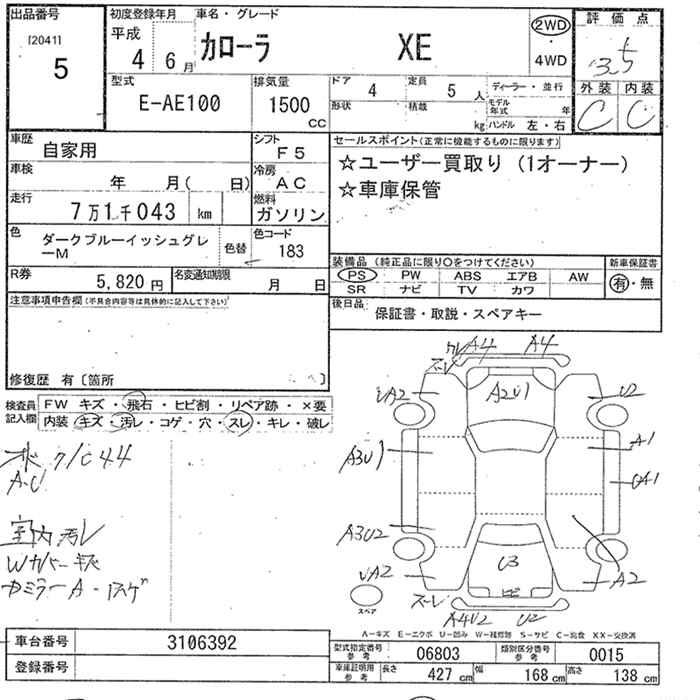 出品番号
[2041]
5
初度登録年月
平成
4 6月
車名・グレード
カローラ XE
2WD
・
4WD
評価点
3.5
外装 内装
C C
型式
E-AE100
排気量
1500
CC
ドア 4
定員 5 人
ディーラー・並行
形状
積載 kg
モデル年式 年
ハンドル 左・右
車歴
自家用
シフト
F5
車検
年 月( 日)
冷房
AC
走行
7万1千043 km
燃料
ガソリン
色
ダークブルーイッシュグレーM
色替
色コード
183
R券
5,820円
名変通知期限
月 日
セールスポイント(正常に機能するものに限ります)
☆ユーザー買取り(1オーナー)
☆車庫保管
装備品(純正品に限り○をつけてください)
PS PW ABS エアB AW
SR ナビ TV カワ
新車保証書
有・無
後日品
保証書・取説・スペアキー
注意事項申告欄(不具合内容等は具体的に記入して下さい)
修復歴 有〔箇所 〕
検査員記入欄
FW キズ・飛石・ヒビ割・リペア跡・×要
内装 キズ・汚レ・コゲ・穴・スレ・キレ・破レ
A4 A4
A2U1
UA2
U2
A1
A3U1
UA1
A3U2
U3
UA2
A2
A4U2 U2
スペア
7/C44
A・U
室内汚レ
Wカバーキズ
A-キズ E-エクボ U-凹み W-補修跡 S-サビ C-腐食 XX-交換済
車台番号 3106392
登録番号
型式指定番号参考 06803
類別区分番号参考 0015
車庫証明用参考
長さ 427 cm
幅 168 cm
高さ 138 cm